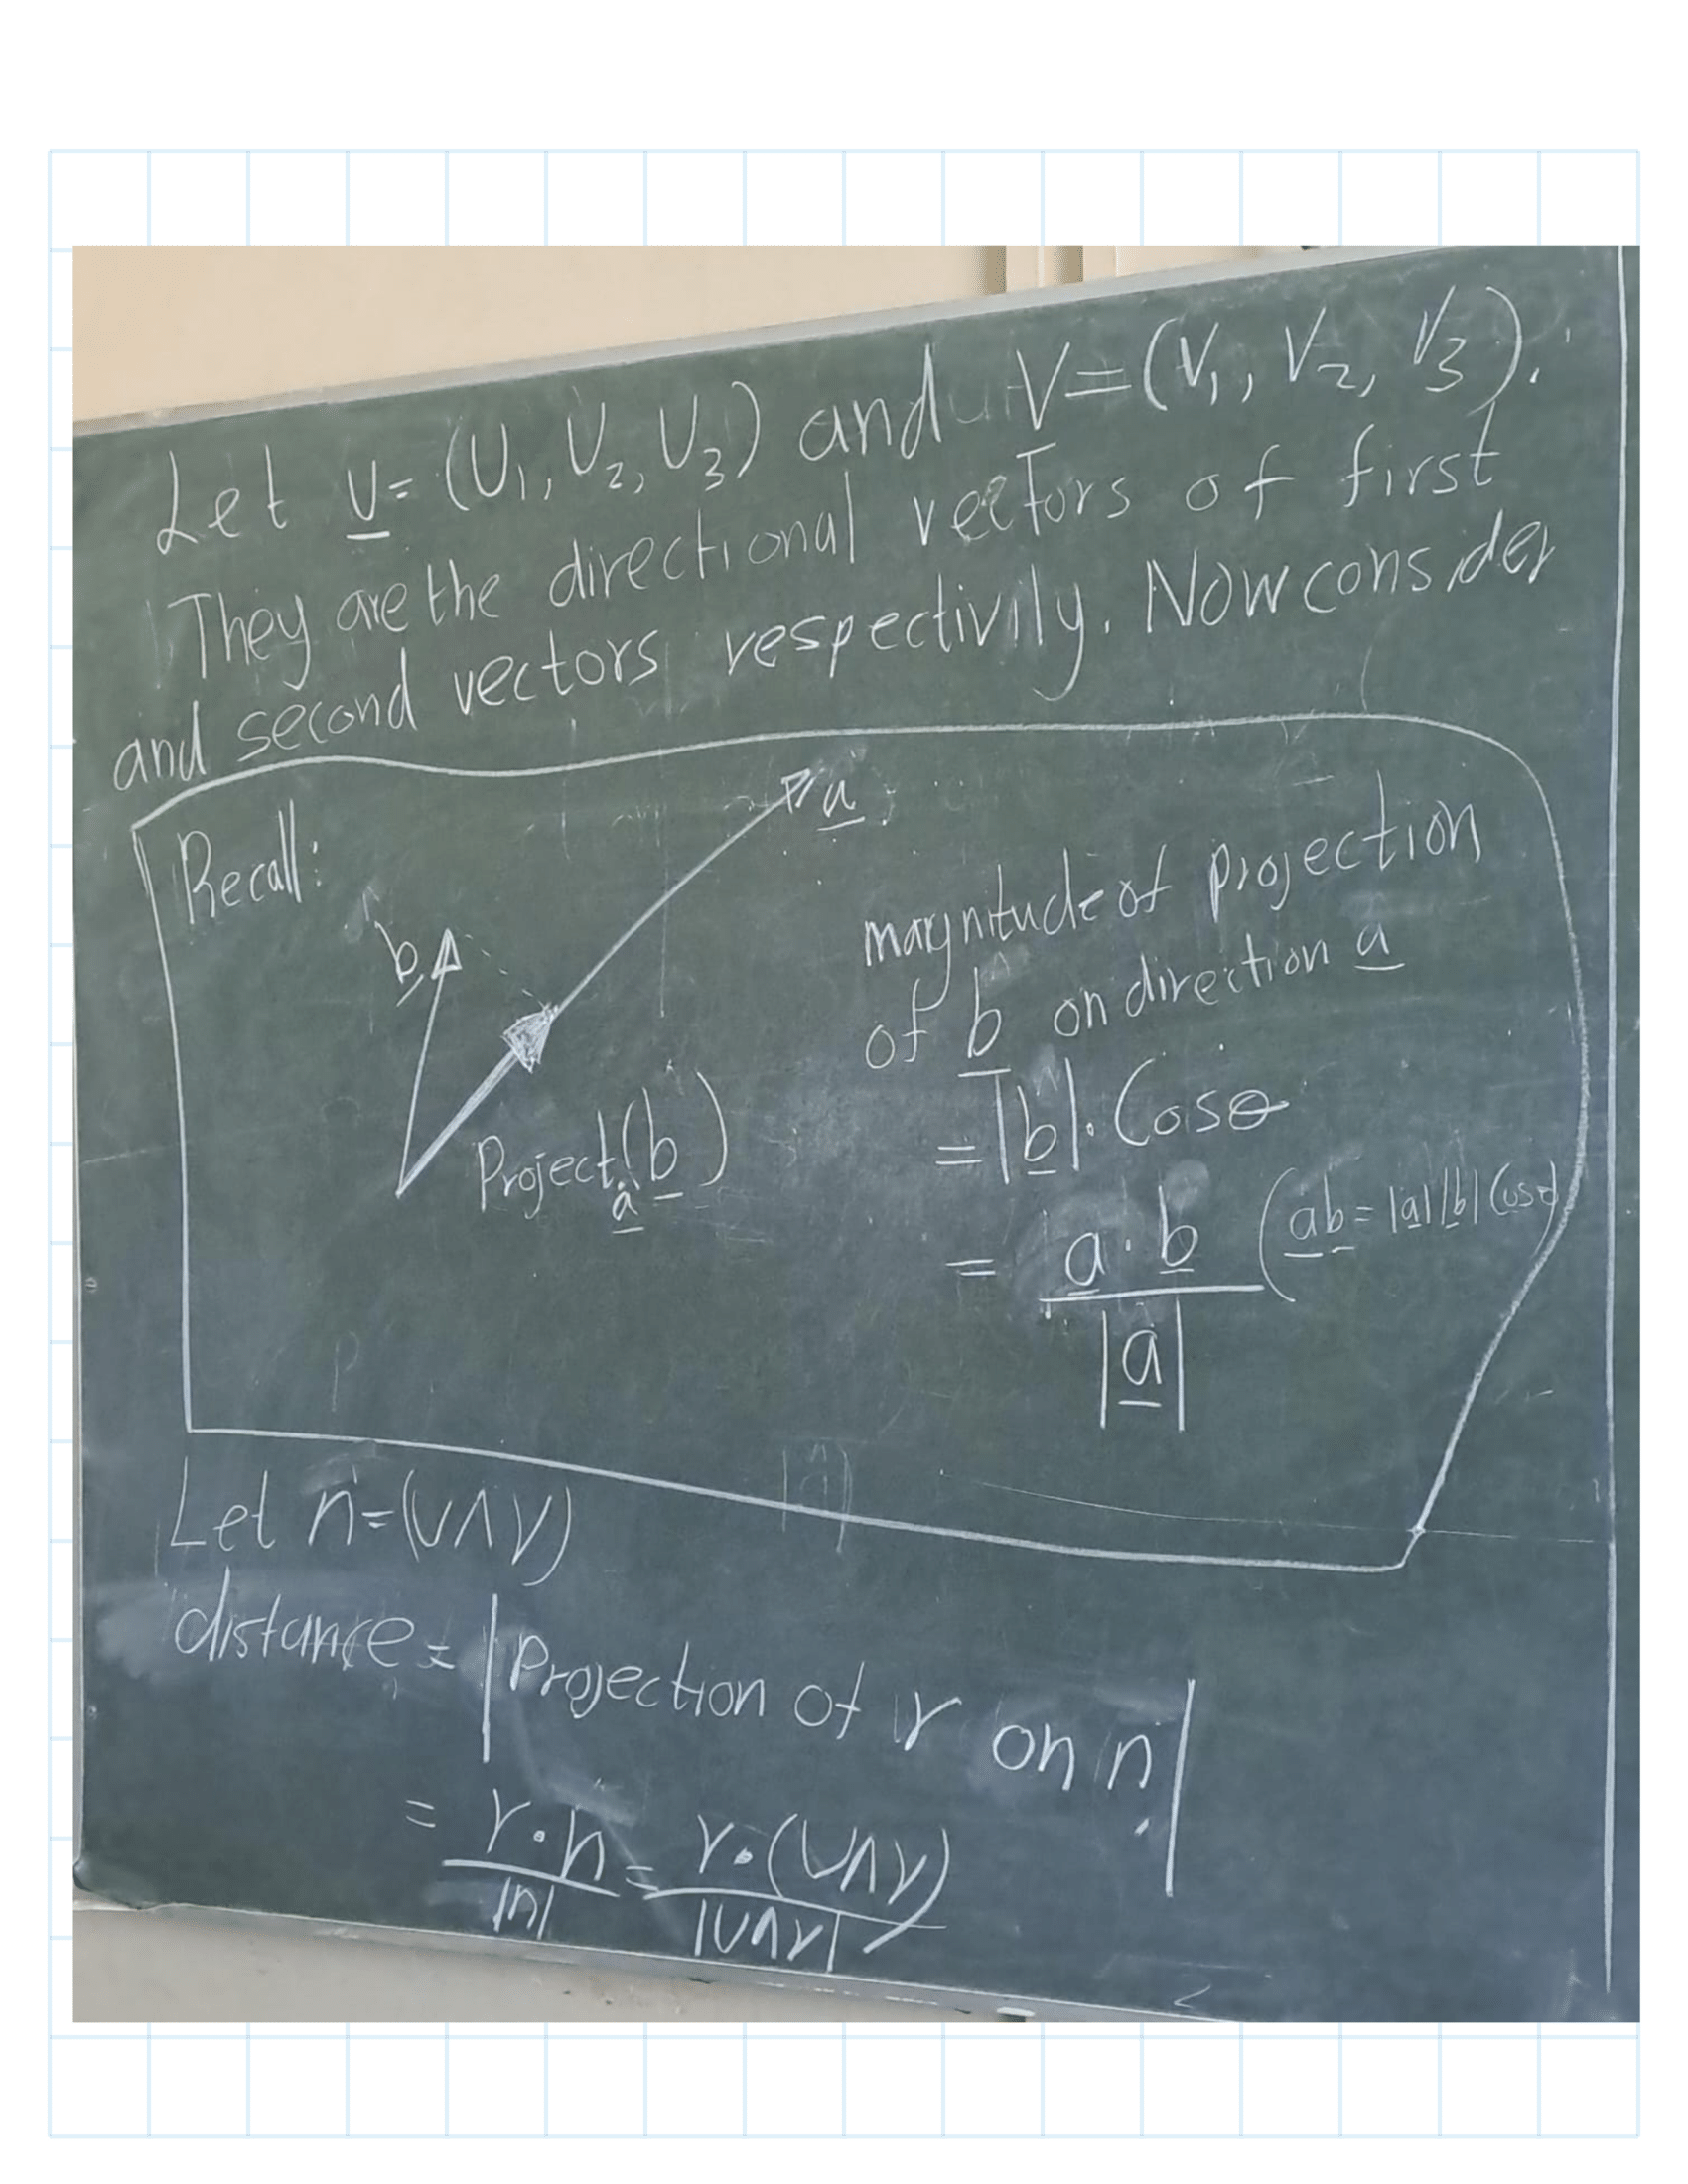 Let u = (U₁, U₂, U₃) and V = (V₁, V₂, V₃).
They are the directional vectors of first
and second vectors respectivily. Now consider
Recall:
a
b
Project_a(b)
magnitude of projection
of b on direction a
= |b|. Cosθ
= a · b / |a| (ab = |a||b| Cosθ)
Let n = (U∧V)
distance = |Projection of r on n|
= r·n / |n| = r·(U∧V) / |U∧V|